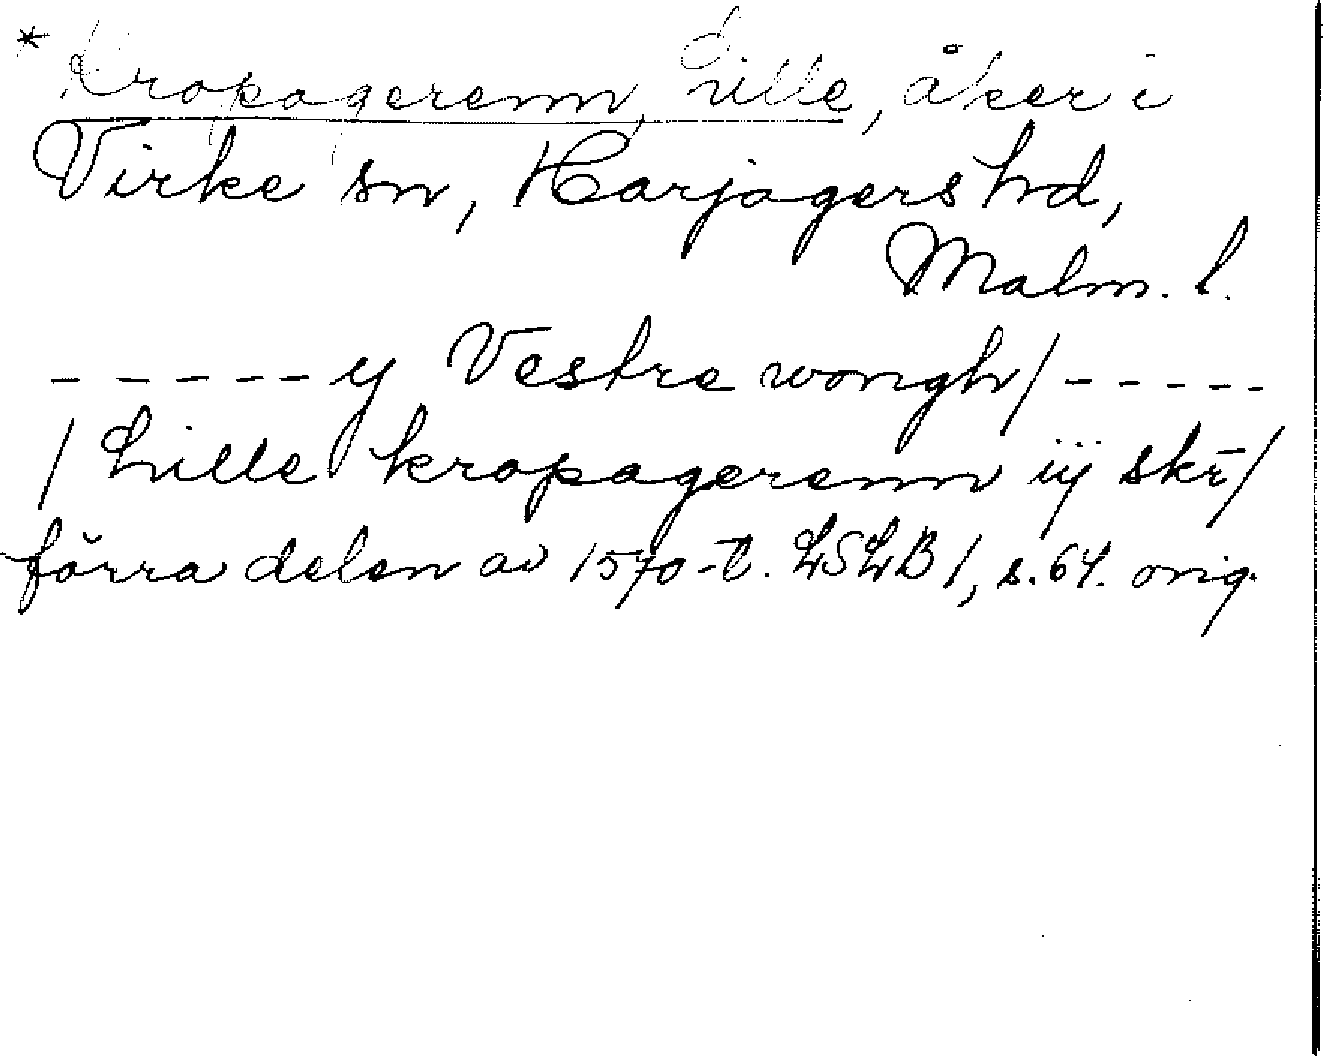 * Kropagerenn, Lille, åker i
Virke sn, Harjagers hd,
Malm. l.
- - - - - y Vestre wongh / - - - - -
/ Lille kropagerenn iij skr̄ /
förra delen av 1570-t. LSLB 1, s. 64. orig.